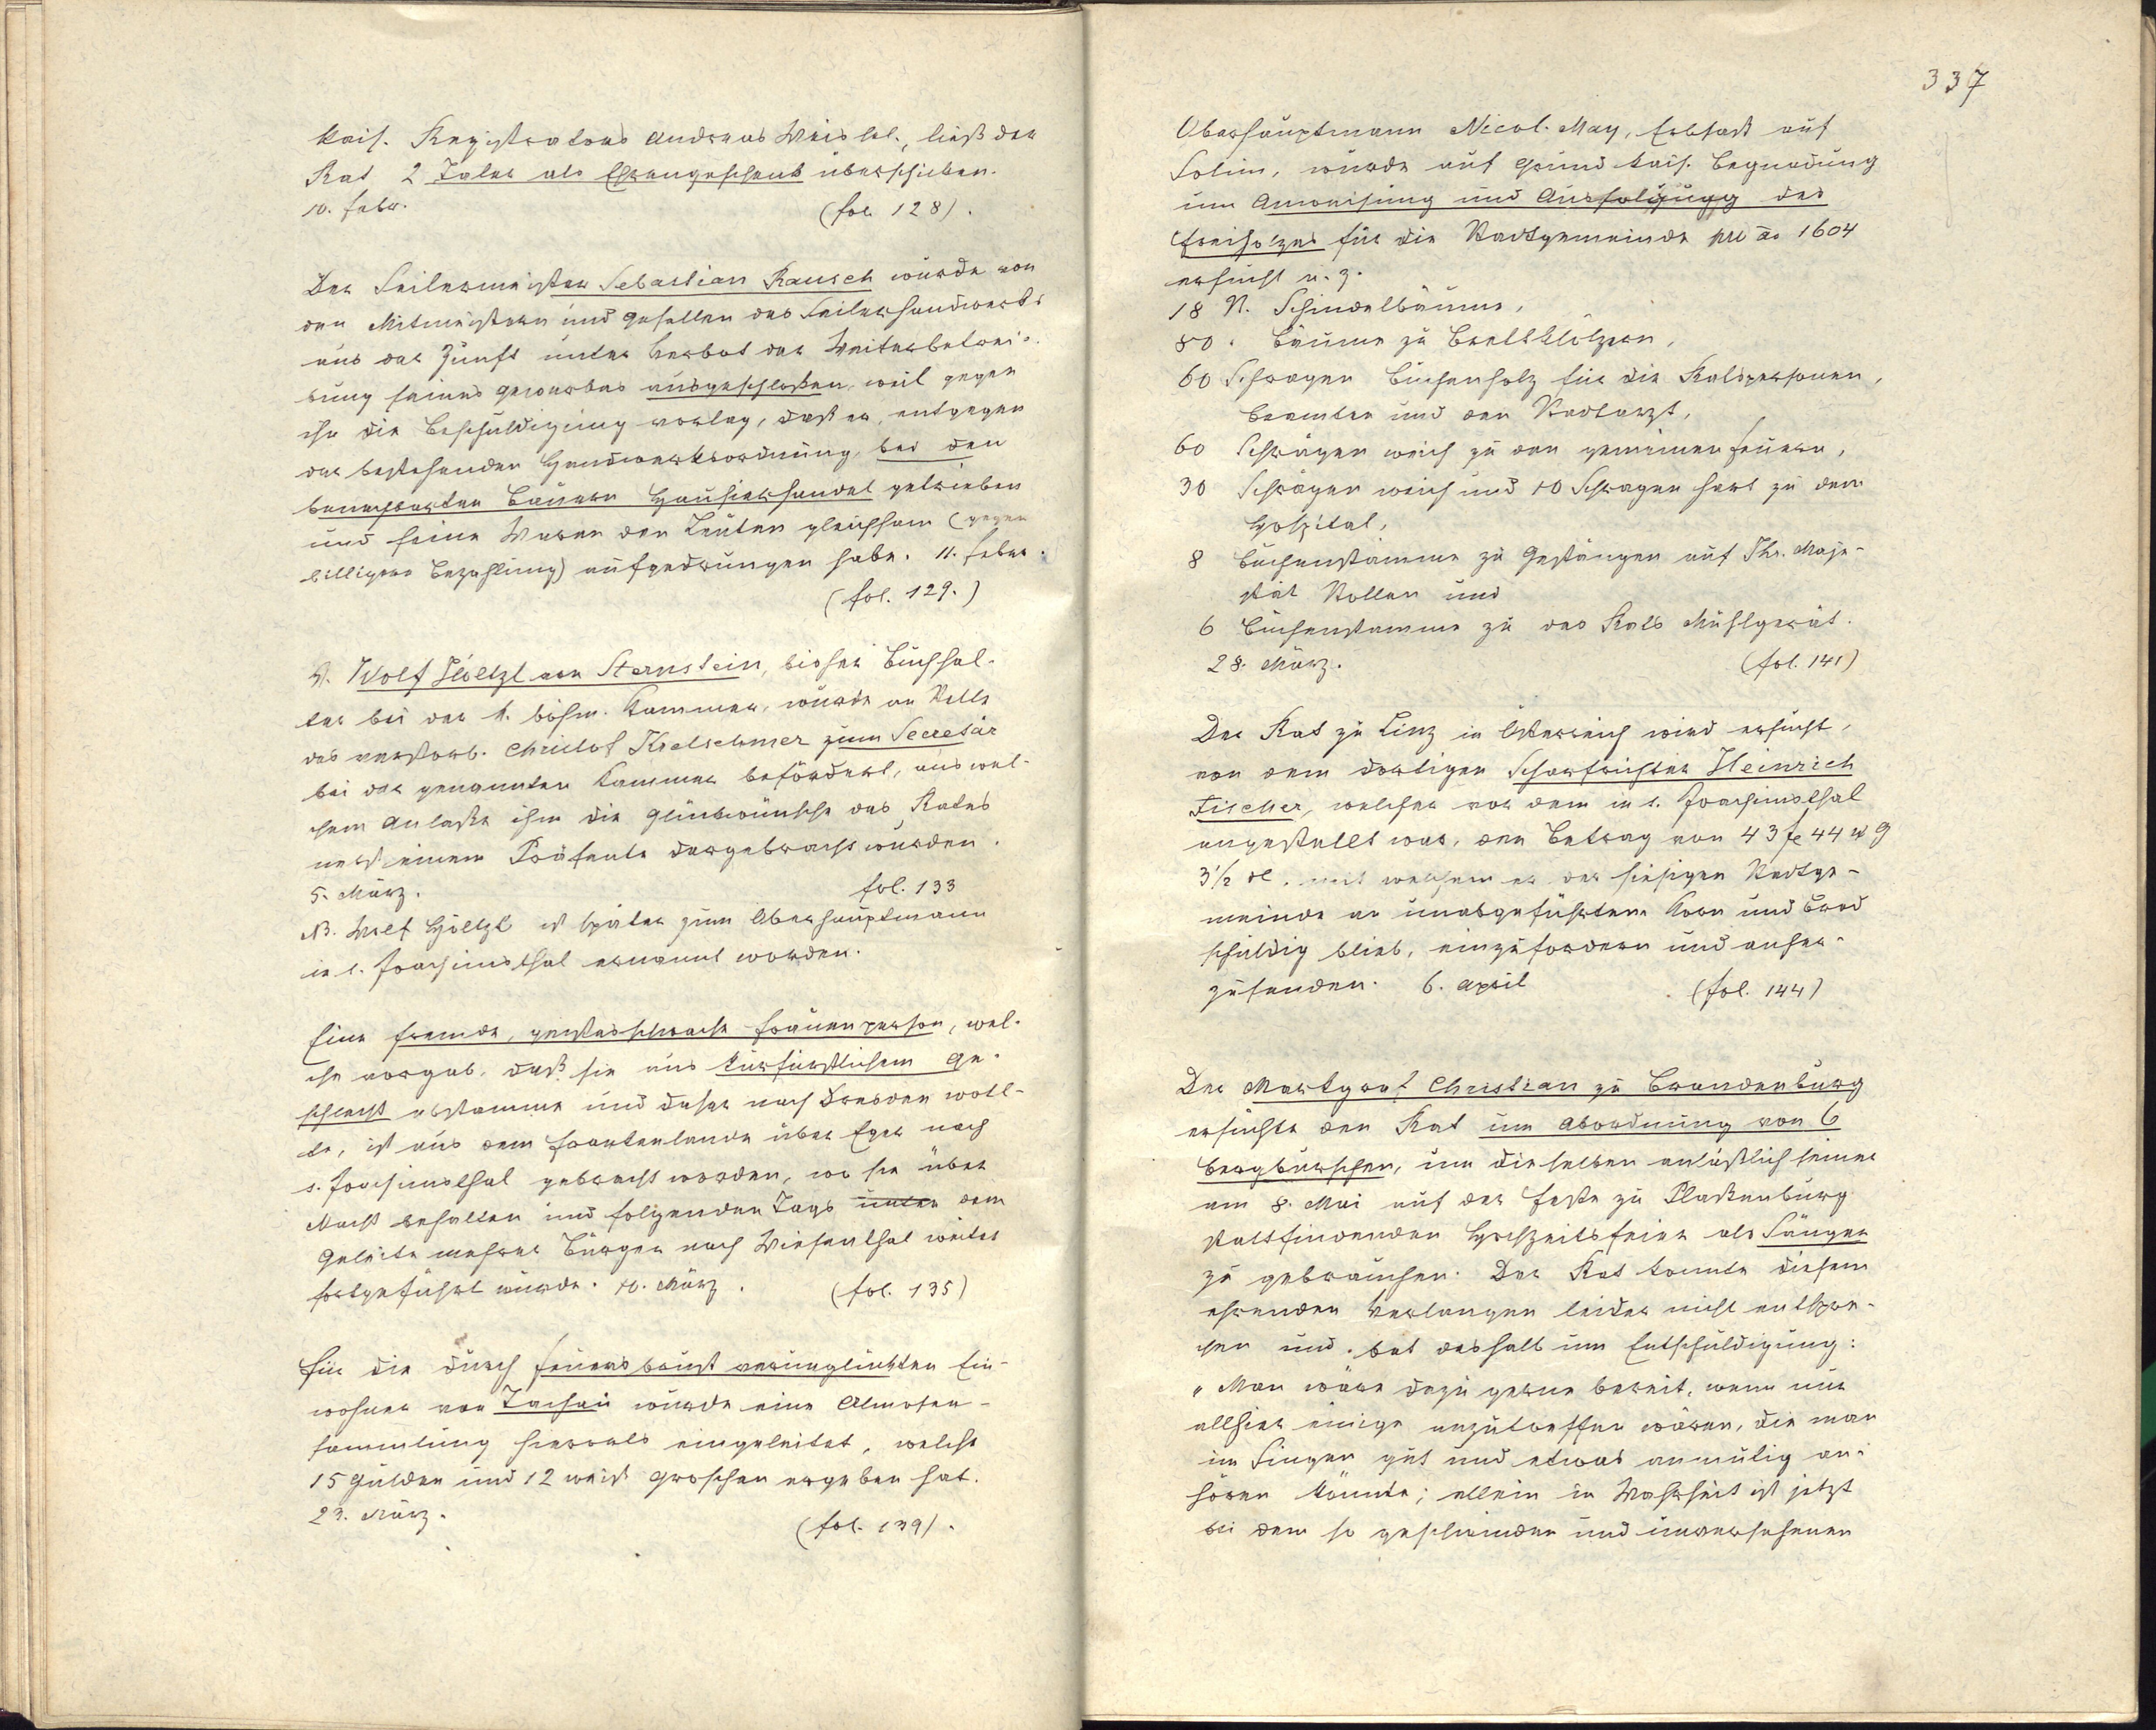 kais. Registrators Andreas Weis sel., ließ der
Rat 2 Taler als Ehrengeschenk überschicken.
10. Febr. (fol. 128).
Der Seilermeister Sebastian Rausch wurde von
den Mitmeistern und Gesellen des Seilerhandwerks
aus der Zunft unter Verbot der Weiterbetrei-
bung seines Gewerbes ausgeschloßen, weil gegen
ihn die Beschuldigung vorlag, daß er, entgegen
der bestehenden Handwerksordnung, bei den
benachbarten Bauern Hausierhandel getrieben
und seine Waren den Leuten gleichsam (gegen
billigere Bezahlung) aufgedrungen habe. 11. Febr.
(fol. 129.)
Wolf Höltzl von Sternstein, bisher Buchhal-
ter bei der k. böhm. Kammer, wurde an Stelle
des verstorb. Christof Kretschmer zum Secretär
bei der genannten Kammer befördert, aus wel-
chem Anlaße ihm die Glückwünsche des Rates
nebst einem Präsente dargebracht wurden.
5. März. fol. 133
NB. Wolf Höltzl ist später zum Oberhauptmann
in s. Joachimsthal ernannt worden.
Eine fremde, geistesschwache Frauenperson, wel-
che vorgab, daß sie aus kurfürstlichem Ge-
schlecht abstamme und daher nach Dresden woll-
te, ist aus dem Frankenlande über Eger nach
s. Joachimsthal gebracht worden, wo sie über
Nacht behalten und folgenden Tags unter dem
Geleite mehrer Bürger nach Wiesenthal weiter
fortgeführt wurde. 10. März. (fol. 135)
Für die durch Feuersbrunst verunglückten Ein-
wohner von Tachau wurde eine Almosen-
sammlung hierorts eingeleitet, welche
15 Gulden und 12 weiß Groschen ergeben hat.
23. März. (fol. 139).
337
Oberhauptmann Nicol. May, Erbsaß auf
Solin, wurde auf Grund kais. Begnadung
um Anweisung und Ausfolgung des
Freiholzes für die Stadtgemeinde pro ao 1604
ersucht u. z.
18 St. Schindelbäume,
80 " Bäume zu Brettklötzern,
60 Schragen Buchenholz für die Ratspersonen,
Beamten und den Stadtarzt,
60 Schragen weich zu den gemeinen Feuern,
30 Schragen weich und 10 Schragen hart zu dem
Hospital,
8 Buchenstämme zu Gestängen auf Ihr. Maje-
stät Stollen und
6 Buchenstämme zu des Rats Mühlgerät.
28. März. (fol. 141)
Der Rat zu Linz in Österreich wird ersucht,
von dem dortigen Scharfrichter Heinrich
Fischer, welcher vor dem in s. Joachimsthal
angestellt war, den Betrag von 43 fl 44 w g
3 1/2 dl, mit welchem er der hiesigen Stadtge-
meinde an unabgeführtem Korn und Brod
schuldig blieb, einzufordern und anher-
zusenden. 6. April (fol. 144)
Der Markgraf Christian zu Brandenburg
ersuchte den Rat um Abordnung von 6
Bergburschen, um dieselben anläßlich seiner
am 8. Mai auf der Feste zu Plaßenburg
stattfindenden Hochzeitsfeier als Sänger
zu gebrauchen. Der Rat konnte diesem
ehrenden Verlangen leider nicht entspre-
chen und bat deshalb um Entschuldigung:
„Man wäre dazu gerne bereit, wenn nur
allhier einige anzutreffen wären, die man
im Singen gut und etwas anmutig an-
hören könnte; allein in Wahrheit ist jetzt
bei dem so geschwinden und unversehenen